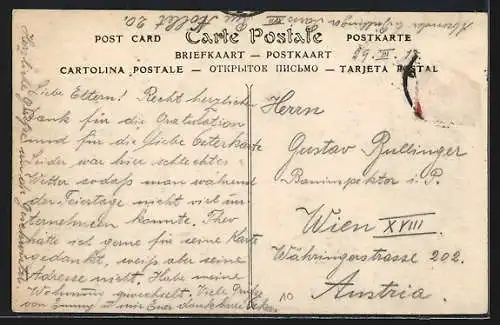 Rue Nollet 20.
POST CARD
Carte Postale
POSTKARTE
BRIEFKAART — POSTKAART
CARTOLINA POSTALE — ОТКРЫТОЕ ПИСЬМО — TARJETA POSTAL
Liebe Eltern! Recht herzlichen
Dank für die Gratulation
und für die liebe Osterkarte
Leider war hier schlechtes
Wetter sodaß man während
der Feiertage nicht viel un
ternehmen konnte. Theo
hätte ich gerne für seine Karte
gedankt, weiß aber seine
Adresse nicht. Habe meine
Wohnung gewechselt. Viele Grüße
von
Herrn
Gustav Rullinger
Bauinspektor i. P.
Wien XVIII.
Währingerstrasse 202.
Austria.
10